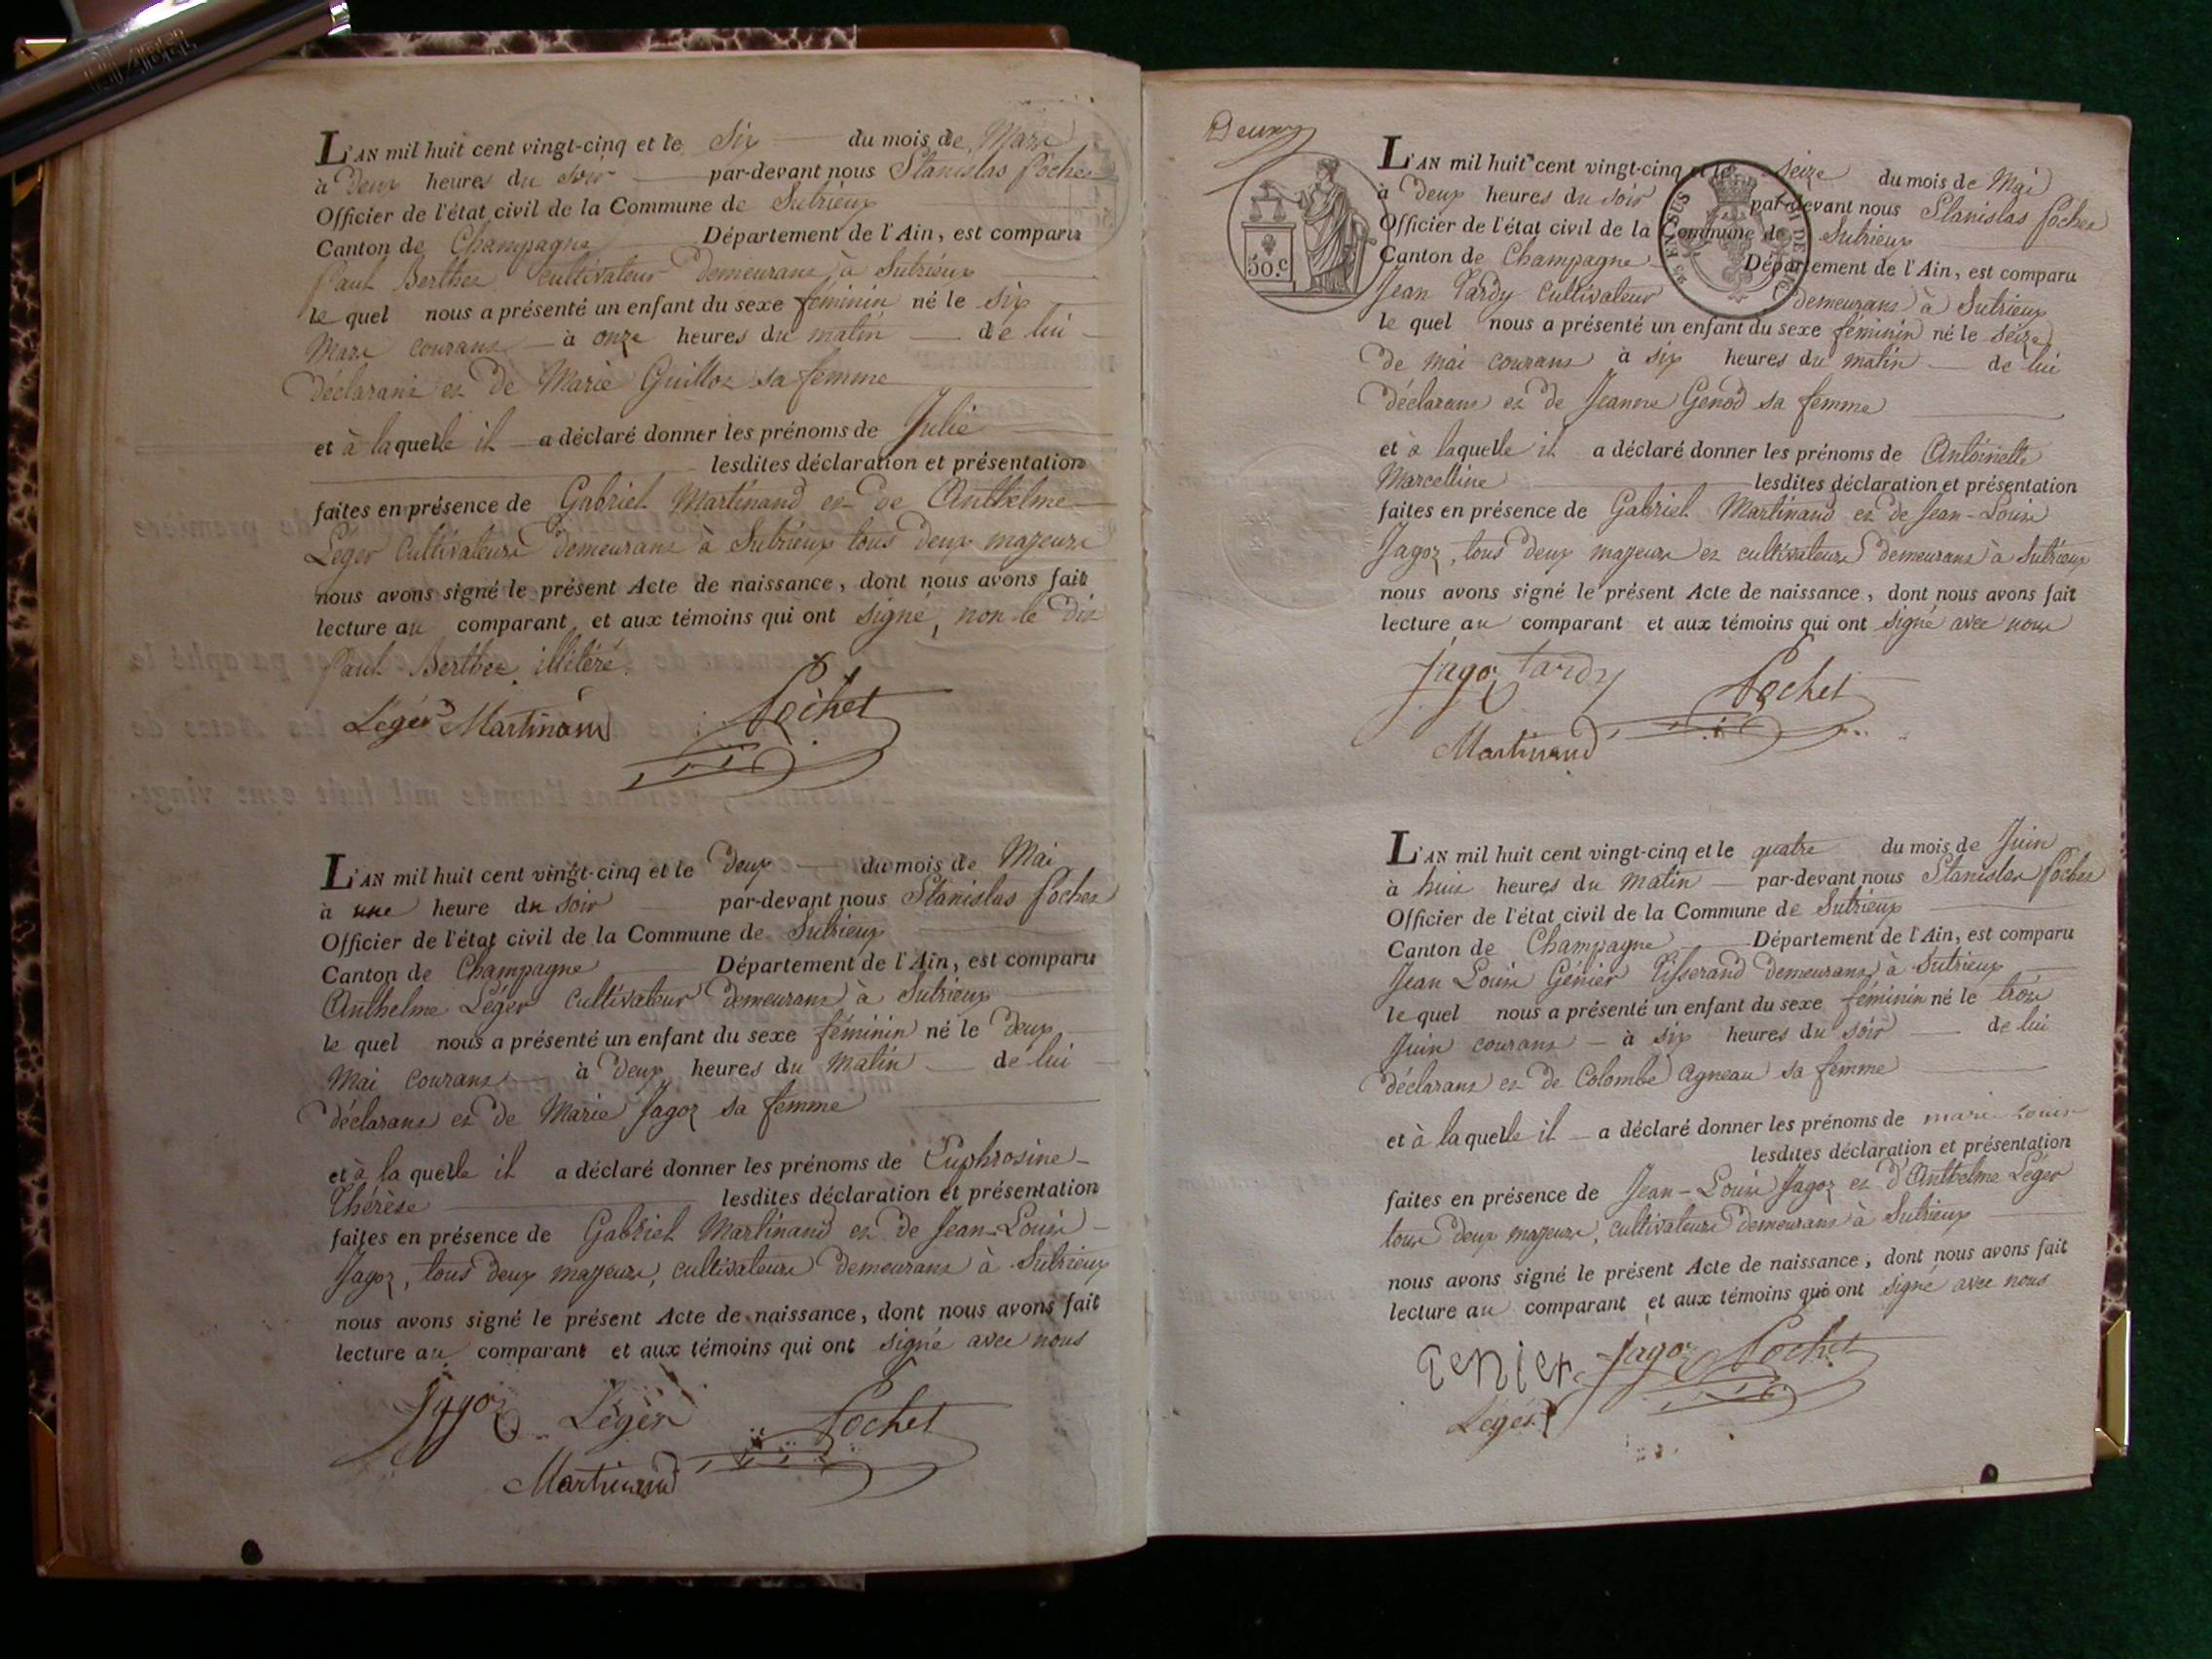 L'AN mil huit cent vingt-cinq et le six du mois de Mars
à deux heures du soir par-devant nous Stanislas Pochet
Officier de l'état civil de la Commune de Sutrieux
Canton de Champagne Département de l'Ain, est comparu
Paul Berthet cultivateur demeurant à Sutrieux
le quel nous a présenté un enfant du sexe féminin né le six
Mars courant à onze heures du matin de lui
déclarant et de Marie Guillot sa femme
et à laquelle il a déclaré donner les prénoms de Julie
lesdites déclaration et présentation
faites en présence de Gabriel Martinand et de Anthelme
Léger cultivateurs demeurant à Sutrieux tous deux majeurs
nous avons signé le présent Acte de naissance, dont nous avons fait
lecture au comparant et aux témoins qui ont signé, non le dit
Paul Berthet illétéré.
Léger Martinand Pochet
L'AN mil huit cent vingt-cinq et le deux du mois de Mai
à une heure du soir par-devant nous Stanislas Pochet
Officier de l'état civil de la Commune de Sutrieux
Canton de Champagne Département de l'Ain, est comparu
Anthelme Léger cultivateur demeurant à Sutrieux
le quel nous a présenté un enfant du sexe féminin né le deux
Mai courant à deux heures du matin de lui
déclarant et de Marie Jagoz sa femme
et à la quelle il a déclaré donner les prénoms de Euphrosine
Thérèse lesdites déclaration et présentation
faites en présence de Gabriel Martinand et de Jean-Louis
Jagoz, tous deux majeurs, cultivateurs demeurant à Sutrieux
nous avons signé le présent Acte de naissance, dont nous avons fait
lecture au comparant et aux témoins qui ont signé avec nous
Jagoz Léger Pochet
Martinand
50.C
L'AN mil huit cent vingt-cinq et le seize du mois de Mai
à deux heures du soir par-devant nous Stanislas Pochet
Officier de l'état civil de la Commune de Sutrieux
Canton de Champagne Département de l'Ain, est comparu
Jean Tardy cultivateur demeurant à Sutrieux
le quel nous a présenté un enfant du sexe féminin né le seize
de mai courant à six heures du matin de lui
déclarant et de Jeanne Genod sa femme
et à laquelle il a déclaré donner les prénoms de Antoinette
Marcelline lesdites déclaration et présentation
faites en présence de Gabriel Martinand et de Jean-Louis
Jagoz, tous deux majeurs et cultivateurs demeurant à Sutrieux
nous avons signé le présent Acte de naissance, dont nous avons fait
lecture au comparant et aux témoins qui ont signé avec nous
Jagoz Tardy Pochet
Martinand
L'AN mil huit cent vingt-cinq et le quatre du mois de Juin
à huit heures du matin par-devant nous Stanislas Pochet
Officier de l'état civil de la Commune de Sutrieux
Canton de Champagne Département de l'Ain, est comparu
Jean Louis Génier Tisserand demeurant à Sutrieux
le quel nous a présenté un enfant du sexe féminin né le trois
Juin courant à six heures du soir de lui
déclarant et de Colombe Agneau sa femme
et à laquelle il a déclaré donner les prénoms de marie louise
lesdites déclaration et présentation
faites en présence de Jean-Louis Jagoz et d'Anthelme Léger
tous deux majeurs, cultivateurs demeurant à Sutrieux
nous avons signé le présent Acte de naissance, dont nous avons fait
lecture au comparant et aux témoins qui ont signé avec nous
Genier Jagoz Pochet
Leger